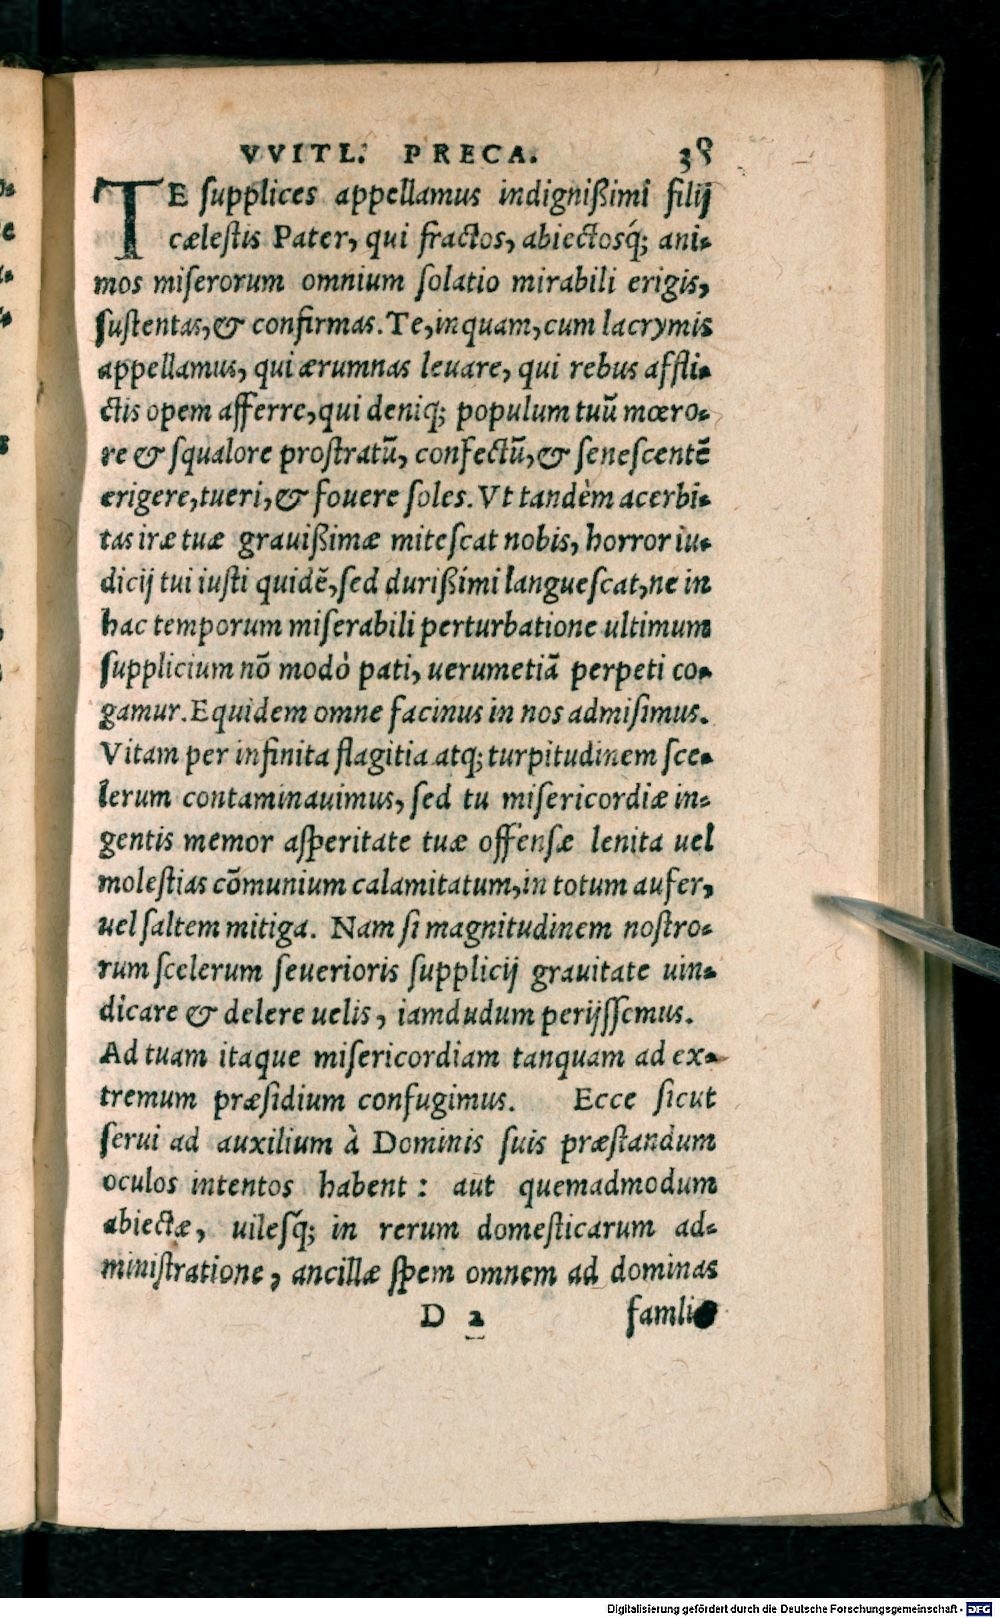 VVITL. PRECA. 38
TE ſupplices appellamus indignißimi filij
cæleſtis Pater, qui fractos, abiectosq́; ani-
mos miſerorum omnium ſolatio mirabili erigis,
ſuſtentas, & confirmas. Te, inquam, cum lacrymis
appellamus, qui ærumnas leuare, qui rebus affli-
ctis opem afferre, qui deniq; populum tuũ mœro-
re & ſqualore proſtratũ, confectũ, & ſeneſcentẽ
erigere, tueri, & fouere ſoles. Vt tandèm acerbi-
tas iræ tuæ grauißimæ miteſcat nobis, horror iu-
dicij tui iuſti quidẽ, ſed durißimi langueſcat, ne in
hac temporum miſerabili perturbatione ultimum
ſupplicium nõ modò pati, uerumetiã perpeti co-
gamur. Equidem omne facinus in nos admiſimus.
Vitam per infinita flagitia atq; turpitudinem ſce-
lerum contaminauimus, ſed tu miſericordiæ in-
gentis memor aſperitate tuæ offenſæ lenita uel
moleſtias cõmunium calamitatum, in totum aufer,
uel ſaltem mitiga. Nam ſi magnitudinem noſtro-
rum ſcelerum ſeuerioris ſupplicij grauitate uin-
dicare & delere uelis, iamdudum perijſſemus.
Ad tuam itaque miſericordiam tanquam ad ex-
tremum præſidium confugimus. Ecce ſicut
ſerui ad auxilium à Dominis ſuis præſtandum
oculos intentos habent: aut quemadmodum
abiectæ, uilesq́; in rerum domeſticarum ad-
miniſtratione, ancillæ ſpem omnem ad dominas
D 2
Digitalisierung gefördert durch die Deutsche Forschungsgemeinschaft - DFG